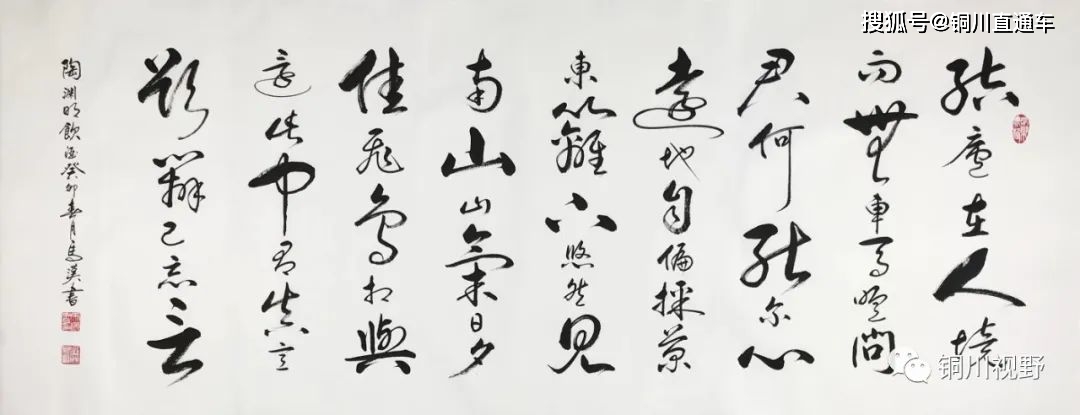 搜狐号@铜川直通车
結廬在人境
而無車馬喧問
君何能尔心
遠地自偏採菊
東籬下悠然見
南山山氣日夕
佳飛鳥相與
還此中有真意
欲辯已忘言
陶渊明飲酒癸卯春月馬漢書
铜川视野